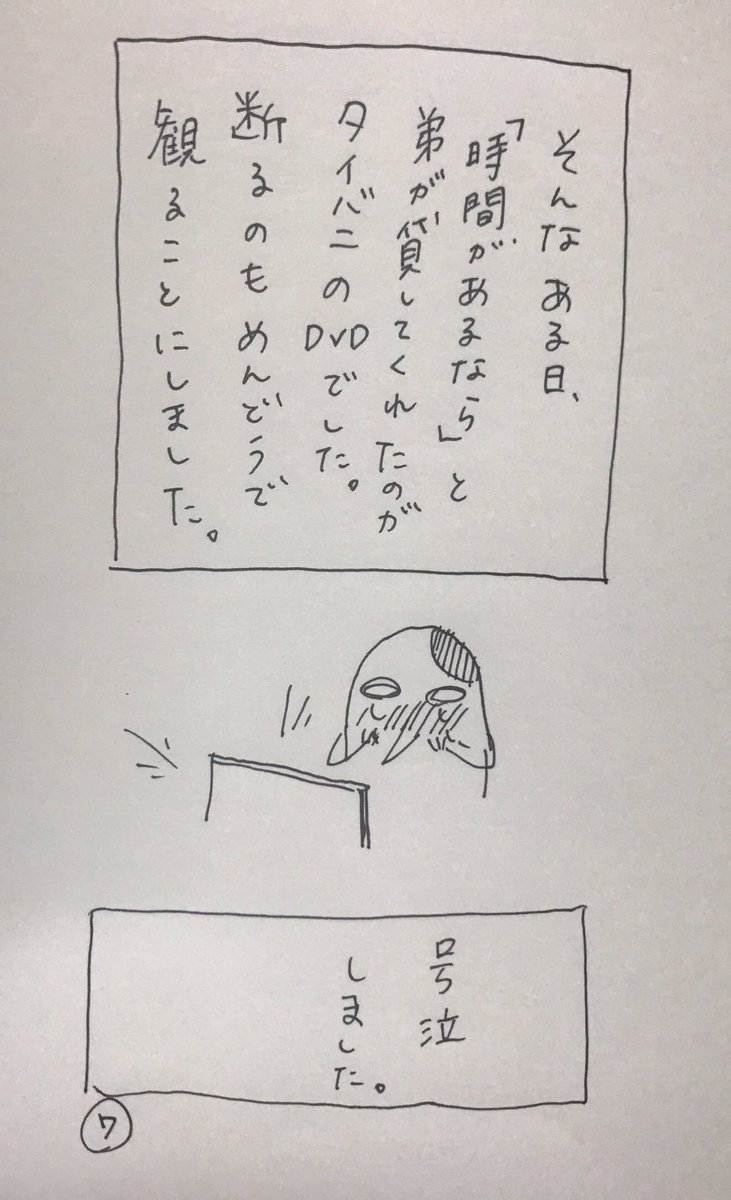 そんなある日、
「時間があるなら」と
弟が貸してくれたのが
タイバニのDVDでした。
断るのもめんどうで
観ることにしました。
号泣
しました。
7